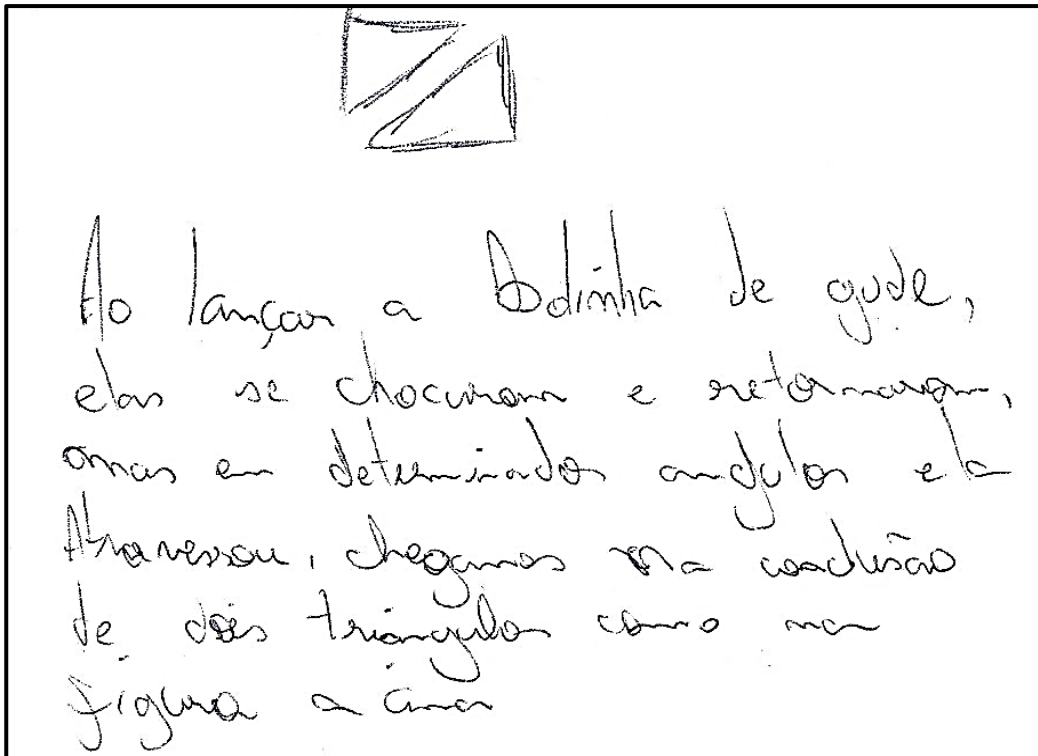 Ao lançar a bolinha de gude,
elas se chocaram e retornaram,
mas em determinados angulos ela
Atravessou, chegamos na conclusão
de dois triangulos como na
figura a cima